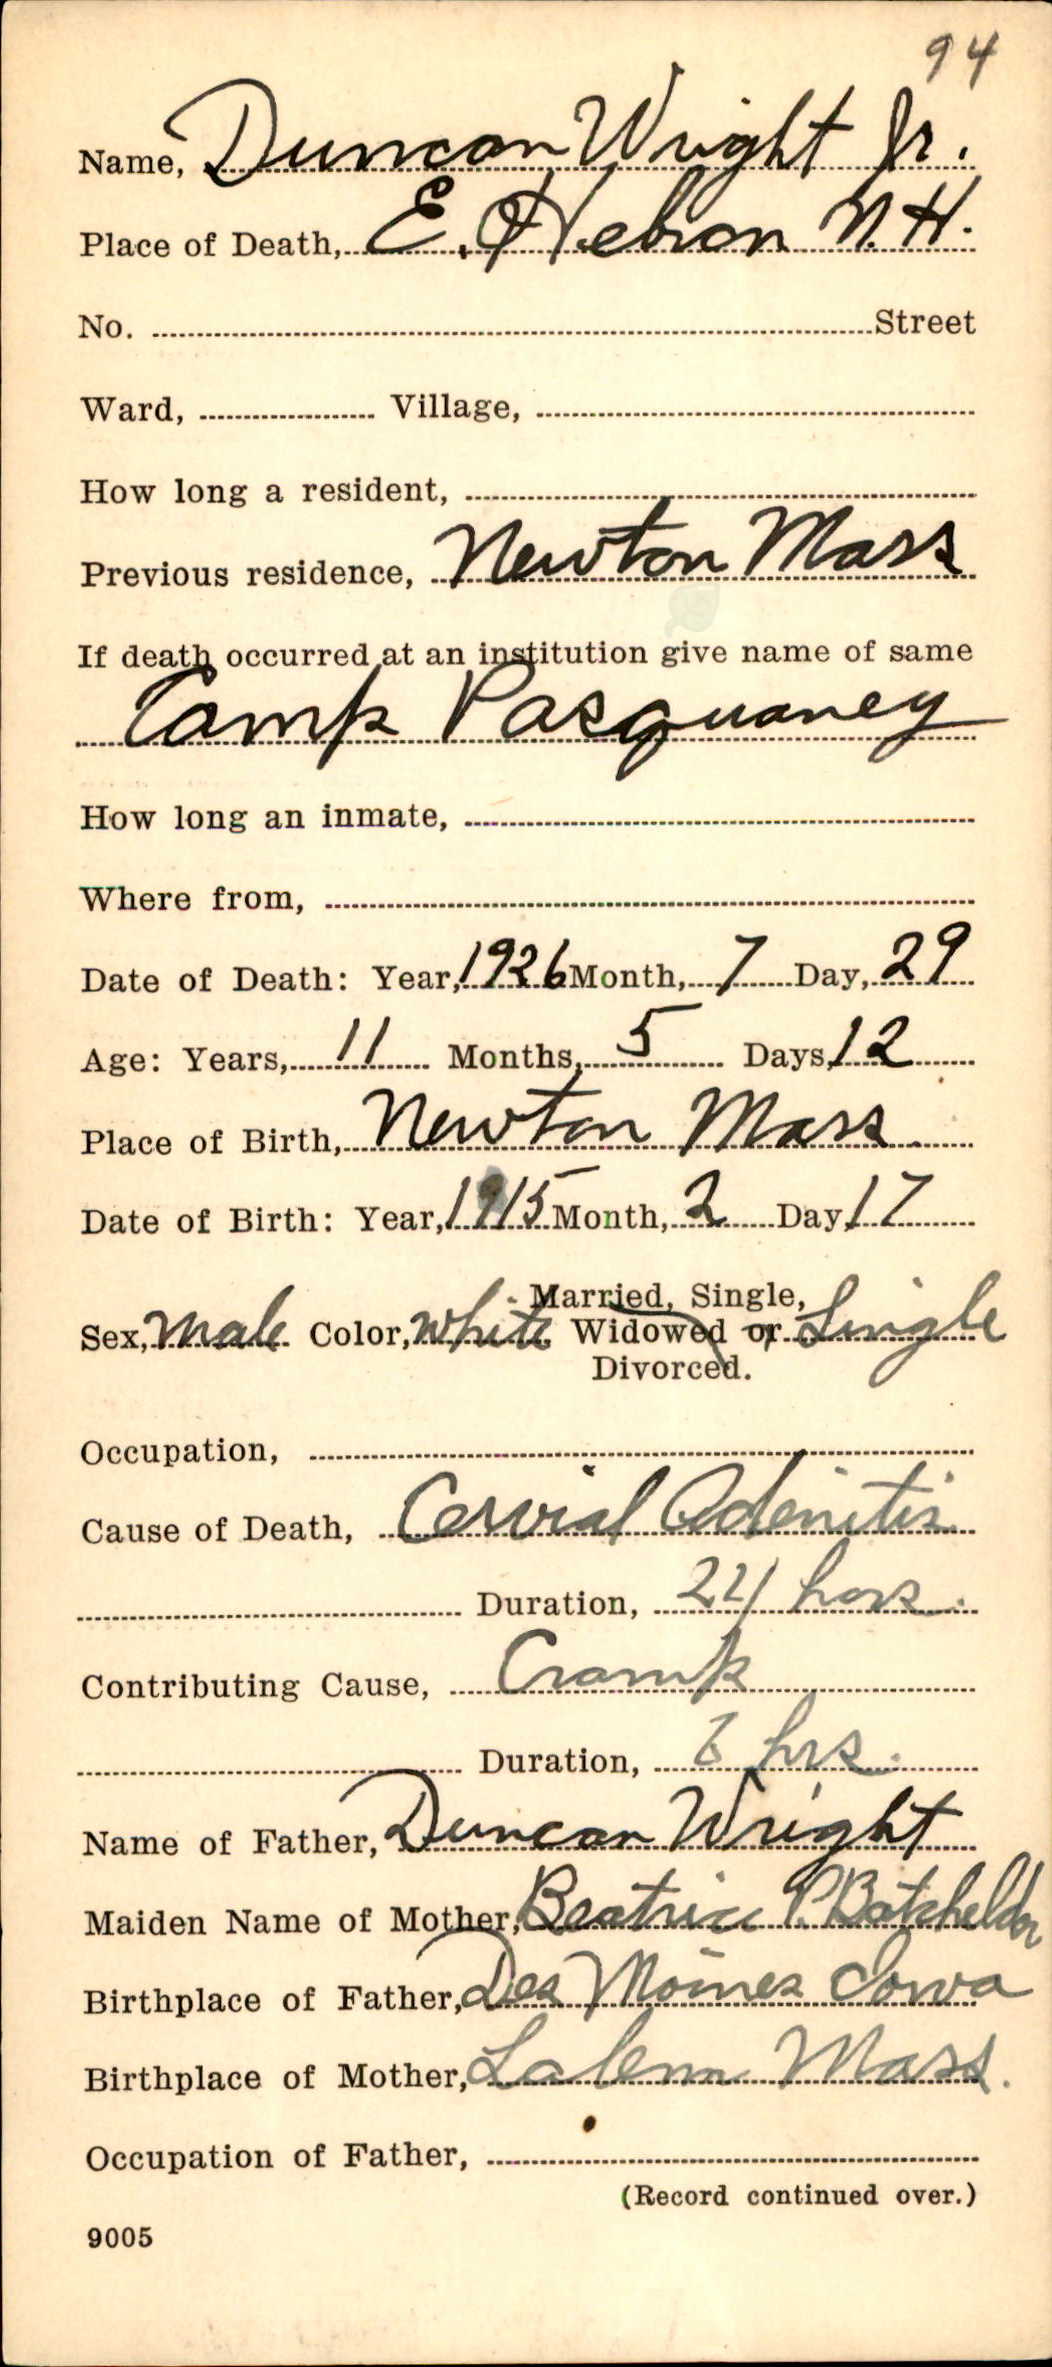 94
Name, Duncan Wright Jr.
Place of Death, E. Hebron N.H.
No. Street
Ward, Village,
How long a resident,
Previous residence, Newton Mass
If death occurred at an institution give name of same
Camp Pasquaney
How long an inmate,
Where from,
Date of Death: Year, 1926 Month, 7 Day, 29
Age: Years, 11 Months, 5 Days, 12
Place of Birth, Newton Mass
Date of Birth: Year, 1915 Month, 2 Day, 17
Married, Single,
Sex, Male Color, White Widowed or Single
Divorced.
Occupation,
Cause of Death, Cervial Adenitis
Duration, 24 hors.
Contributing Cause, Cramp
Duration, hrs.
Name of Father, Duncan Wright
Maiden Name of Mother, Beatrice P. Batchelder
Birthplace of Father, Des Moines Iowa
Birthplace of Mother, Salem Mass.
Occupation of Father,
(Record continued over.)
9005